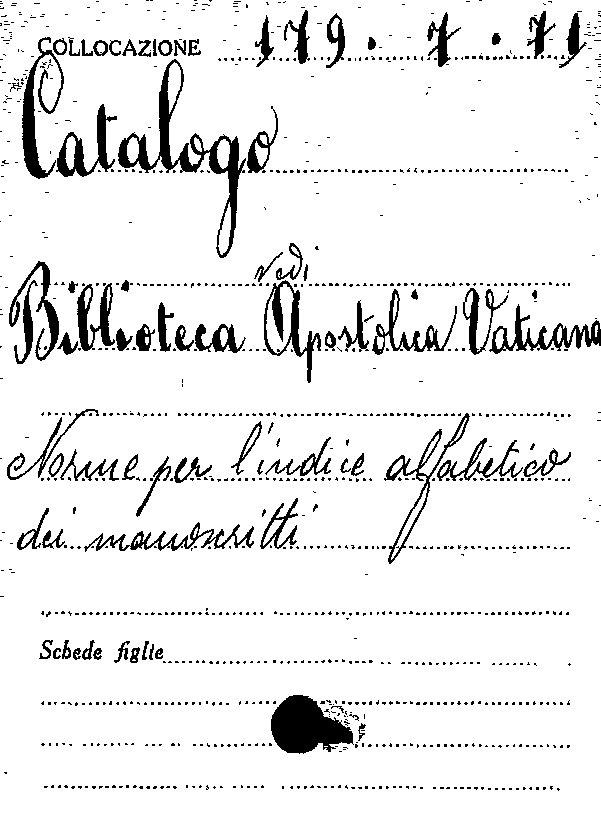 COLLOCAZIONE 179. 7. 71
Catalogo
vedi
Biblioteca Apostolica Vaticana
Norme per l'indice alfabetico
dei manoscritti
Schede figlie